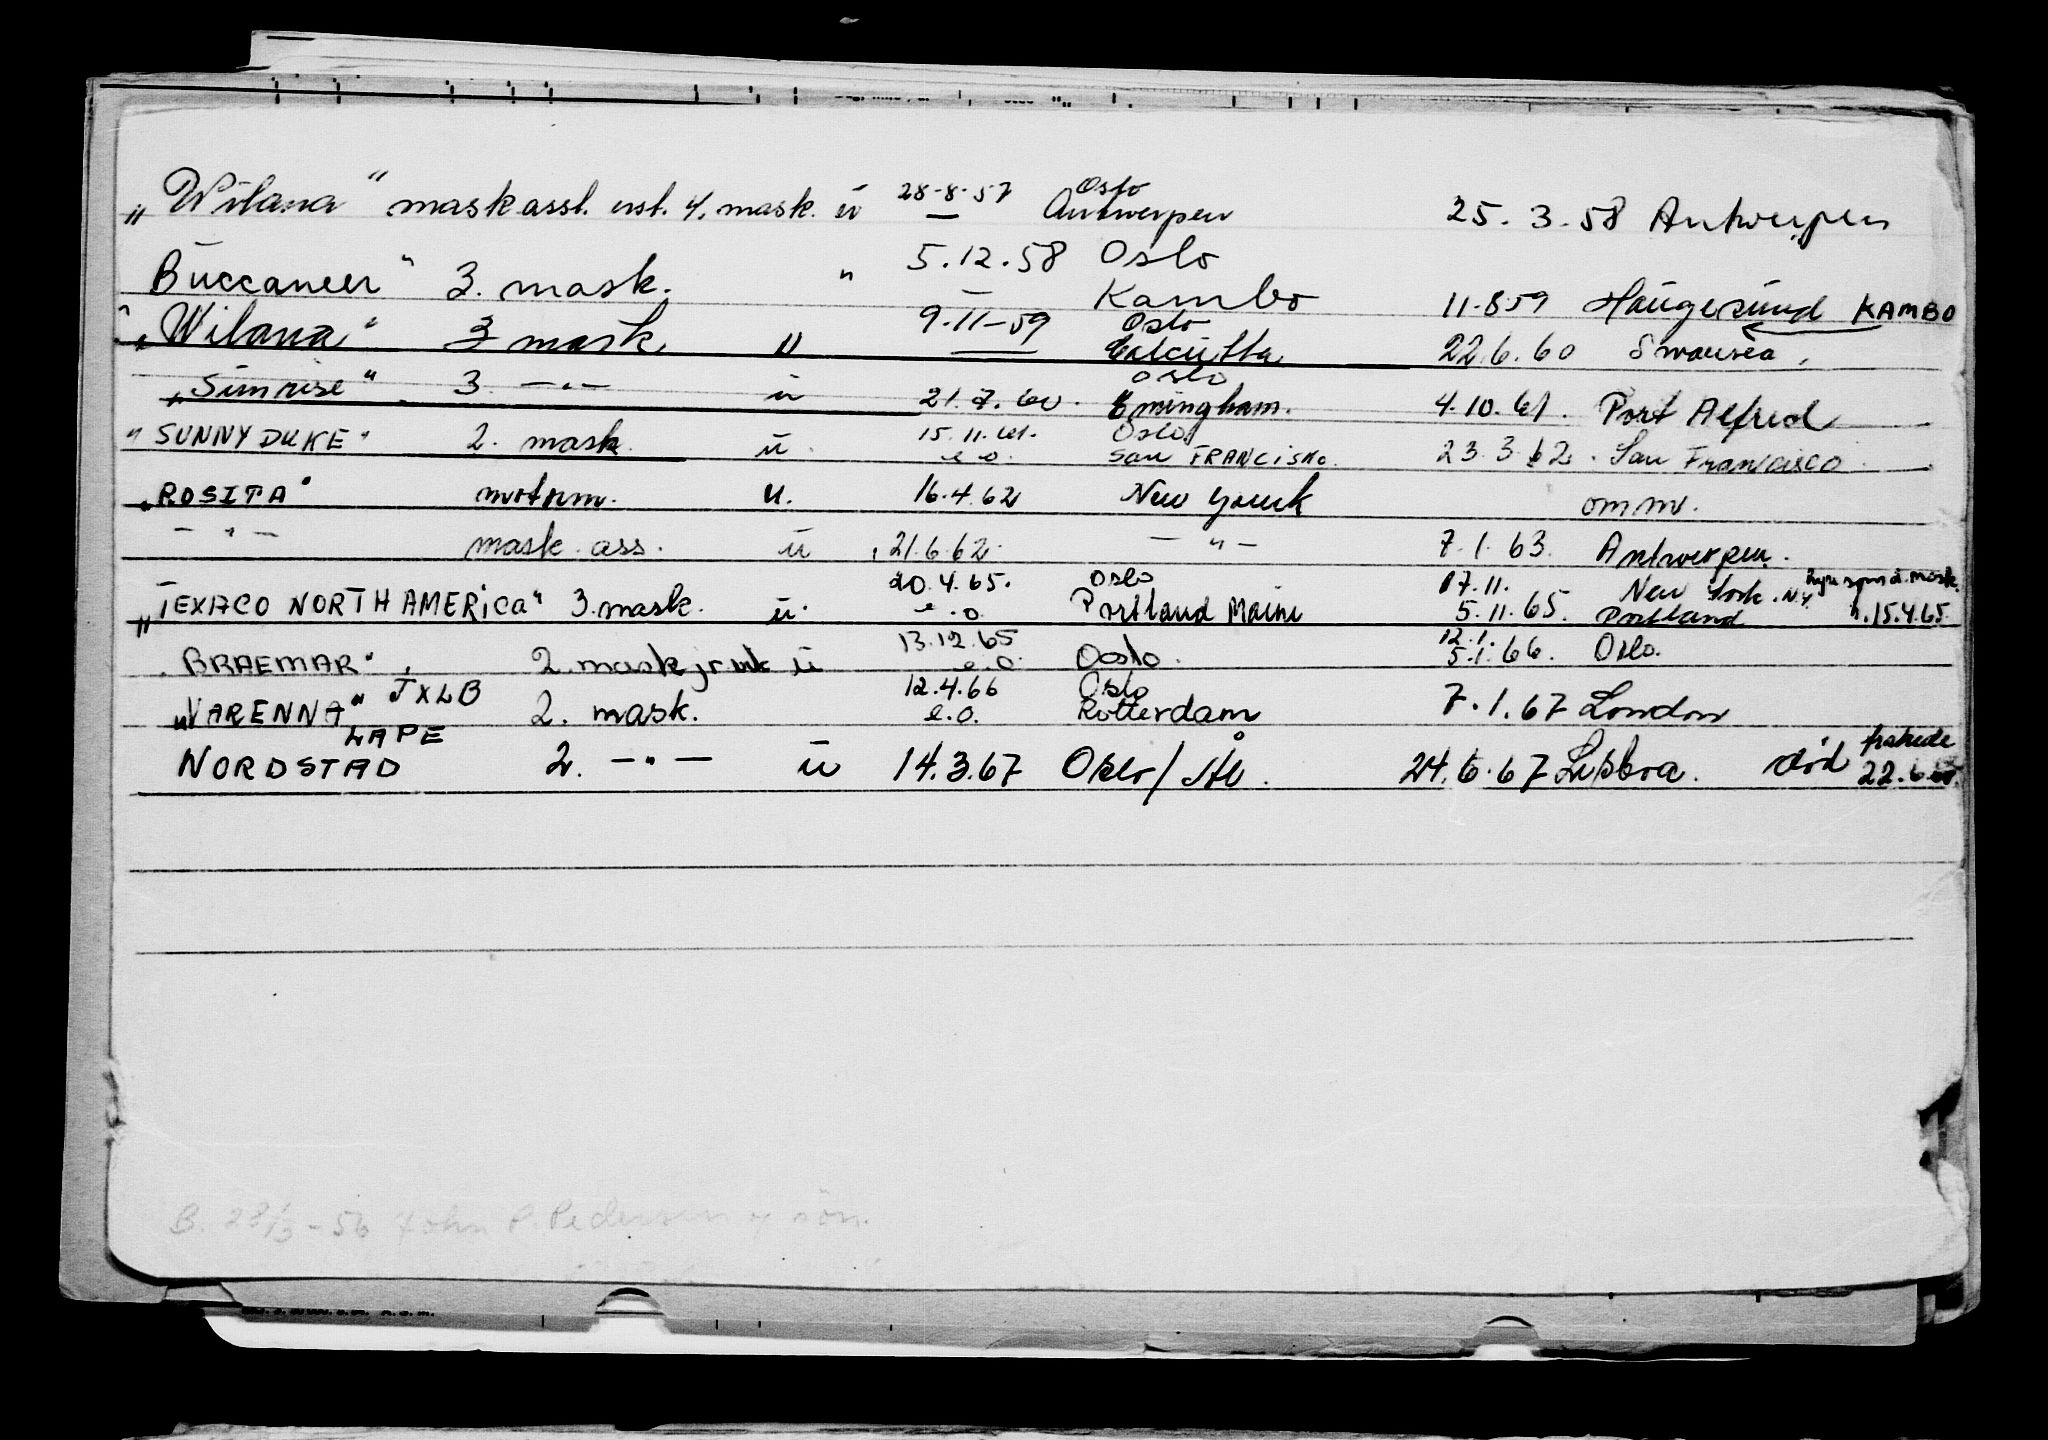 „Wilana" maskasst. ust. 4. mask. ü 28-8-57 Oslo
— Antwerpen 25.3.58 Antwerpen
Buccaneer" 3. mask. " 5.12.58 Oslo
— Kambo 11-8-59 Haugesund KAMBO
„Wilana" 3 mask " 9-11-59 Oslo
— Calcutta 22.6.60 Swansea.
„Sunrise" 3 —"— ü 21.7.60. Oslo
Emingham. 4.10.61. Port Alfred
"SUNNY DUKE" 2. mask. ü. 15.11.61. Oslo
e.o. San FRANCISKO. 23.3.62. San Francisco
„ROSITA" motorm. u. 16.4.62 New Yourk omm.
—"— mask. ass. ü 21.6.62. —"— 7.1.63. Antwerpen.
„TEXACO NORTH AMERICA" 3. mask. ü. 20.4.65. Oslo 17.11. New York. N.Y. hyre som 2. mask.
e.o. Portland Maine 5.11.65. Portland n. 15.4.65.
„BRAEMAR", 2. mask jr. ü 13.12.65 12.1.
e.o. Oslo. 5.1.66. Oslo.
„VARENNA" JXLB 2. mask. 12.4.66 Oslo
e.o. Rotterdam 7.1.67 London
LAPE
NORDSTAD 2. —"— ü 14.3.67 Oslo/Ål. 24.6.67 Lisboa. död
22.6.
B. 28/3-56 John P. Pedersen & sön.